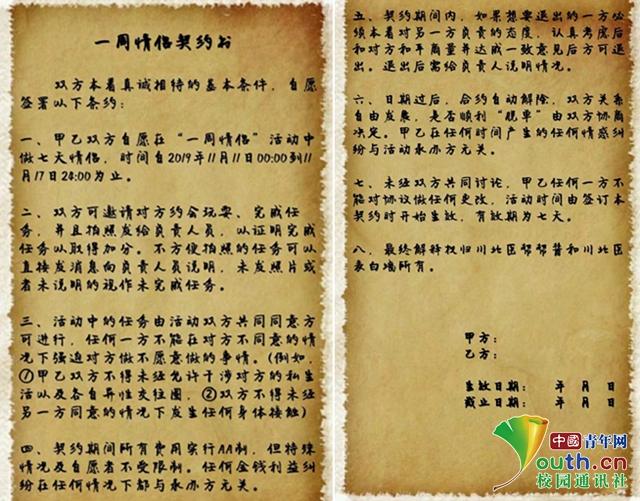 一周情侣契约书
双方本着真诚相待的基本条件，自愿
签署以下条约：
一、甲乙双方自愿在“一周情侣”活动中
做七天情侣，时间自2019年11月11日00:00到11
月17日24:00为止。
二、双方可邀请对方约会玩耍、完成任
务，并且拍照发给负责人员，以证明完成
任务以取得加分。不方便拍照的任务可以
直接发消息向负责人员说明，未发照片或
者未说明的视作未完成任务。
三、活动中的任务由活动双方共同同意方
可进行，任何一方不能在对方不同意的情
况下强迫对方做不愿意做的事情。(例如，
①甲乙双方不得未经允许干涉对方的私生
活以及各自异性交往圈，②双方不得未经
另一方同意的情况下发生任何身体接触)
四、契约期间所有费用实行AA制，但特殊
情况及自愿者不受限制。任何金钱利益纠
纷在任何情况下都与承办方无关。
五、契约期间内，如果想要退出的一方必
须本着对另一方负责的态度，认真考虑后
和对方和平商量并达成一致意见后方可退
出。退出后需给负责人说明情况。
六、日期过后，合约自动解除，双方关系
自由发展，是否顺利“脱单”由双方协商
决定。甲乙在任何时间产生的任何情感纠
纷与活动承办方无关。
七、未经双方共同讨论，甲乙任何一方不
能对协议做任何更改，活动时间由签订本
契约时开始生效，有效期为七天。
八、最终解释权归川北医帮帮普和川北医
表白墙所有。
甲方：
乙方：
生效日期： 年 月 日
截止日期： 年 月 日
中國青年网
Youth.cn
校园通讯社